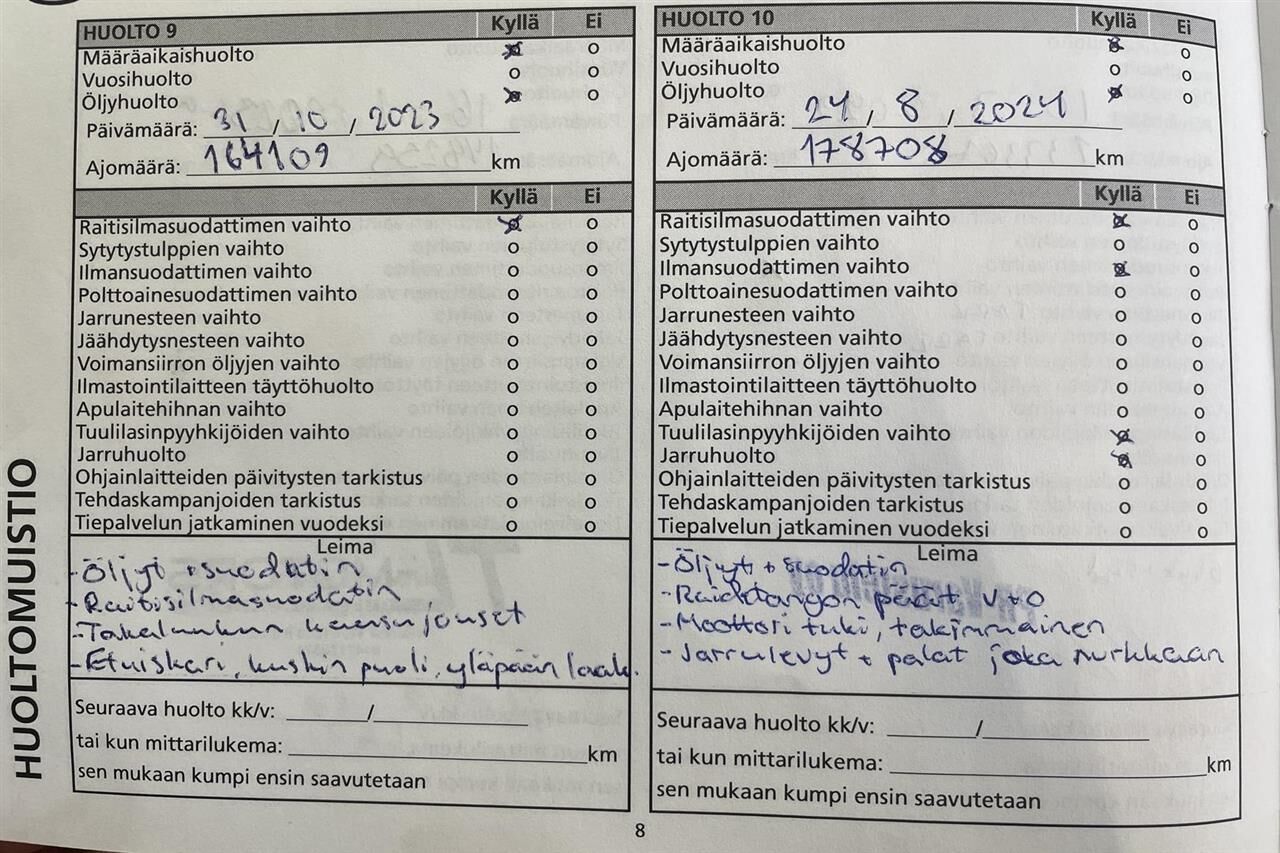 HUOLTOMUISTIO
HUOLTO 9 Kyllä Ei
Määräaikaishuolto o
Vuosihuolto o o
Öljyhuolto o
Päivämäärä: 31 / 10 / 2023
Ajomäärä: 164109 km
Kyllä Ei
Raitisilmasuodattimen vaihto o
Sytytystulppien vaihto o o
Ilmansuodattimen vaihto o o
Polttoainesuodattimen vaihto o o
Jarrunesteen vaihto o o
Jäähdytysnesteen vaihto o o
Voimansiirron öljyjen vaihto o o
Ilmastointilaitteen täyttöhuolto o o
Apulaitehihnan vaihto o o
Tuulilasinpyyhkijöiden vaihto o o
Jarruhuolto o o
Ohjainlaitteiden päivitysten tarkistus o o
Tehdaskampanjoiden tarkistus o o
Tiepalvelun jatkaminen vuodeksi o o
Leima
- Öljyt + suodatin
- Raitisilmasuodatin
- Takaluukun kaasujouset
- Etuiskari, kuskin puoli, yläpään laak.
Seuraava huolto kk/v: /
tai kun mittarilukema: km
sen mukaan kumpi ensin saavutetaan
HUOLTO 10 Kyllä Ei
Määräaikaishuolto o
Vuosihuolto o o
Öljyhuolto o
Päivämäärä: 24 / 8 / 2024
Ajomäärä: 178708 km
Kyllä Ei
Raitisilmasuodattimen vaihto o
Sytytystulppien vaihto o o
Ilmansuodattimen vaihto o
Polttoainesuodattimen vaihto o o
Jarrunesteen vaihto o o
Jäähdytysnesteen vaihto o o
Voimansiirron öljyjen vaihto o o
Ilmastointilaitteen täyttöhuolto o o
Apulaitehihnan vaihto o o
Tuulilasinpyyhkijöiden vaihto o
Jarruhuolto o
Ohjainlaitteiden päivitysten tarkistus o o
Tehdaskampanjoiden tarkistus o o
Tiepalvelun jatkaminen vuodeksi o o
Leima
- Öljyt + suodatin
- Raidetangon päät v+o
- Moottori tuki, takimmainen
- Jarrulevyt + palat joka nurkkaan
Seuraava huolto kk/v: /
tai kun mittarilukema: km
sen mukaan kumpi ensin saavutetaan
8